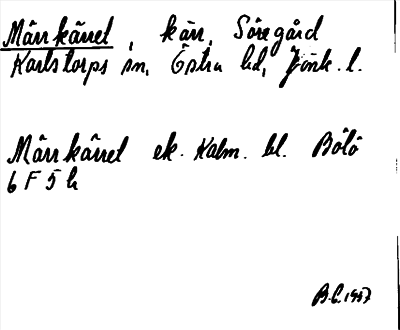 Märrkärret, kärr, Söregård
Karlstorps sn, Östra hd, Jönk. l.
Märrkärret ek. Kalm. bl. Bölö
6 F 5 h
B.L. 1957